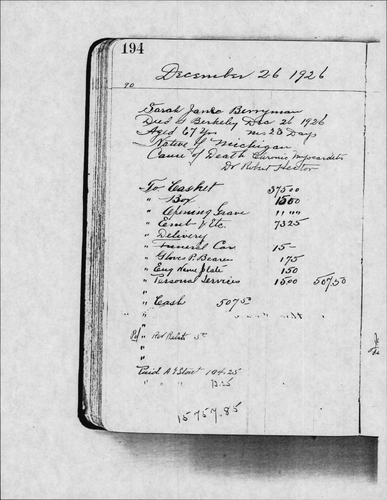 194
December 26 1926
90
Sarah Jane Berryman
Died @ Berkeley Dec 26 1926
Aged 67 Yrs ms 23 Days
Native of Michigan
Cause of Death Chronic Myocarditis
Dr Robert Hector
To Casket 37500
" Box 1500
" Opening Grave " " "
" Emb & Etc. 7325
" Delivery
" Funeral Car 15-
" Gloves P. Bearers 175
" Eng Name Plate 150
" Personal Services 1500 507.50
"
" Cash 507 50
"
"
"
"
"
Paid 194.25
" " "
15757.85